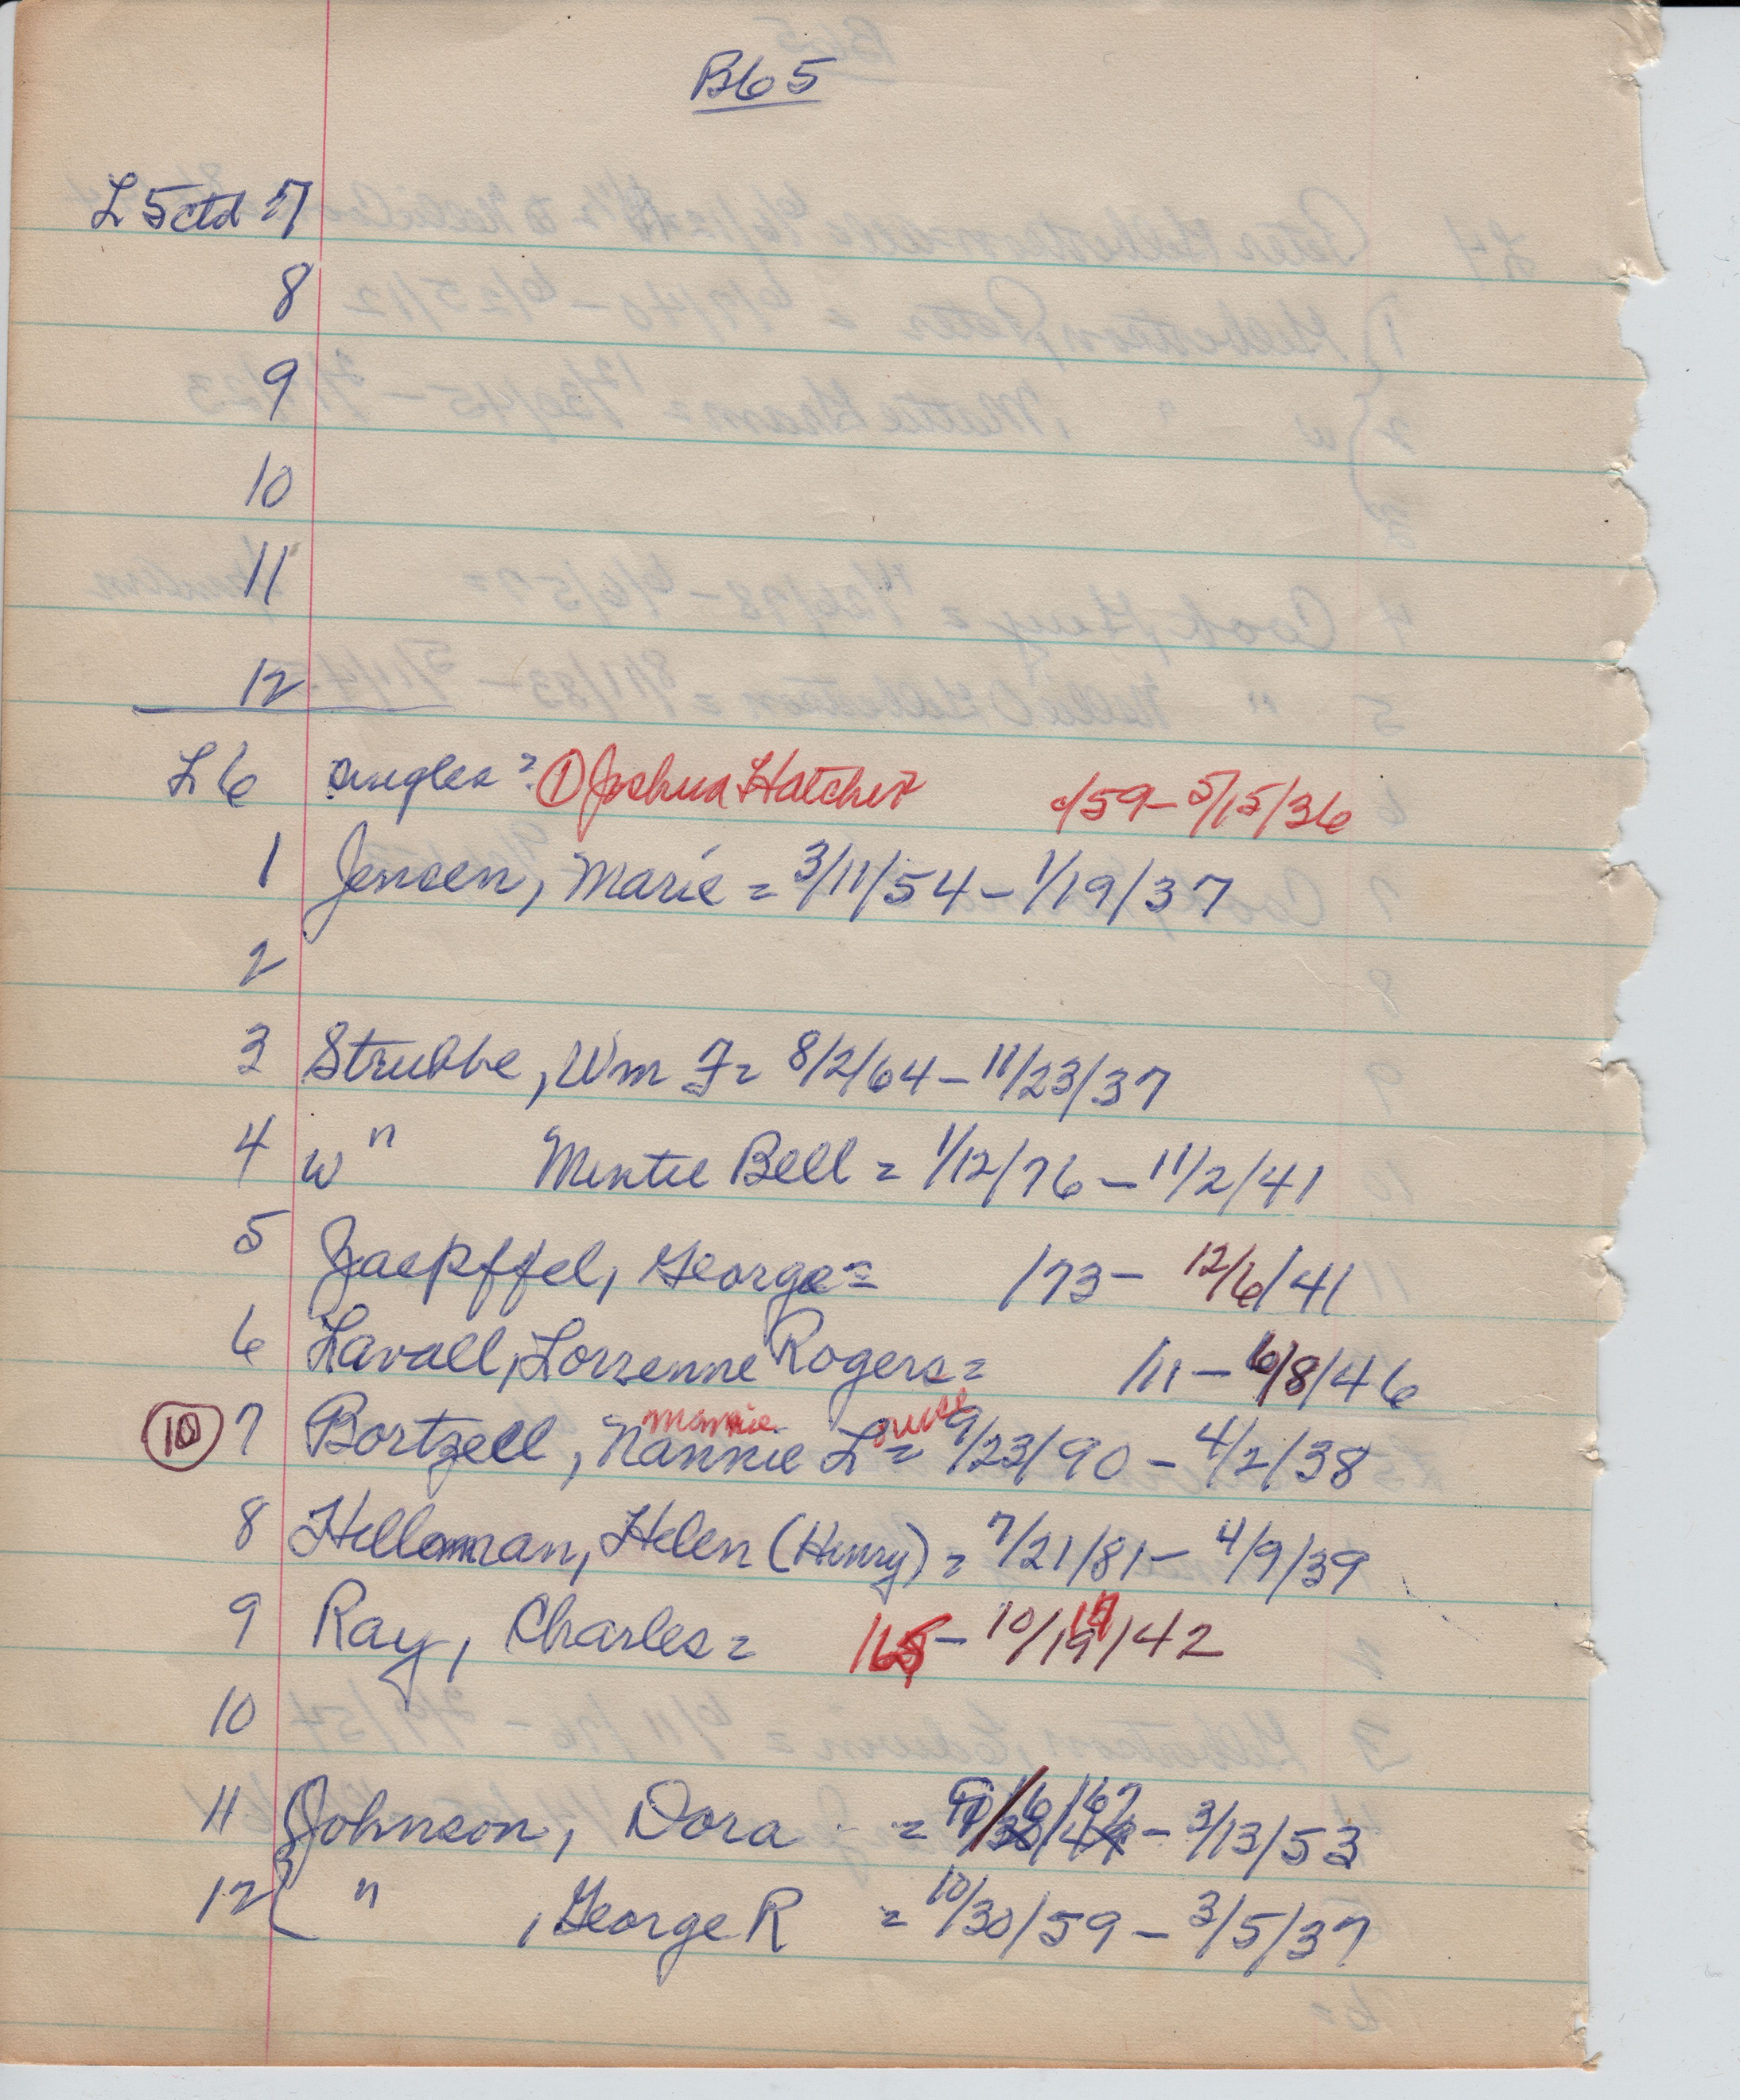 B65
L5ctd 7
8
9
10
11
12
L6 singles = ① Joshua Hatcher /59 - 5/15/36
1 Jensen, Marie = 3/11/54 - 1/19/37
2
3 Strubbe, Wm F = 8/2/64 - 11/23/37
4 w " Mintie Bell = 1/12/76 - 11/2/41
5 Jaepffel, George = /73 - 12/6/41
6 Lavall, Lorrenne Rogers = /11 - 6/8/46
Mamie
⑩ 7 Bortzell, Nannie L = 9/23/90 - 4/2/38
8 Helloman, Helen (Henry) = 7/21/81 - 4/9/39
9 Ray, Charles = - 10/19/42
10
11 Johnson, Dora = - 3/13/53
12 " , George R = 10/30/59 - 3/5/37